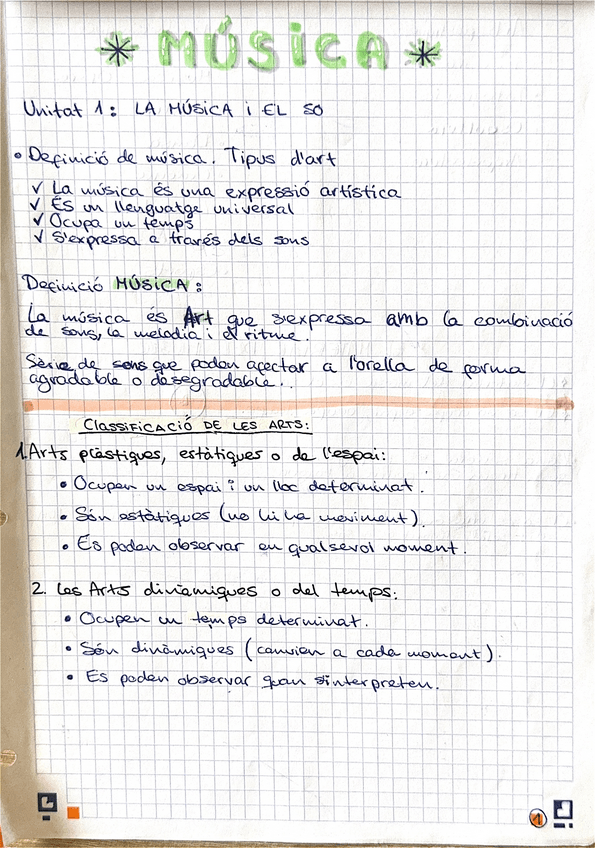 * MÚSiCA *
Unitat 1: LA MÚSICA i EL SO
• Definició de música. Tipus d'art
✓ La música és una expressió artística
✓ És un llenguatge universal
✓ Ocupa un temps
✓ S'expressa a través dels sons
Definició MÚSICA:
La música és Art que s'expressa amb la combinació
de sons, la melodia i el ritme.
Sèrie de sons que poden afectar a l'orella de forma
agradable o desegradable..
CLASSIFICACIÓ DE LES ARTS:
1. Arts plàstiques, estàtiques o de l'espai:
• Ocupen un espai i un lloc determinat.
• Són estàtiques (no hi ha moviment).
• Es poden observar en qualsevol moment.
2. Les Arts dinàmiques o del temps:
• Ocupen un temps determinat.
• Són dinàmiques (canvien a cada moment).
• Es poden observar quan s'interpreten.
1